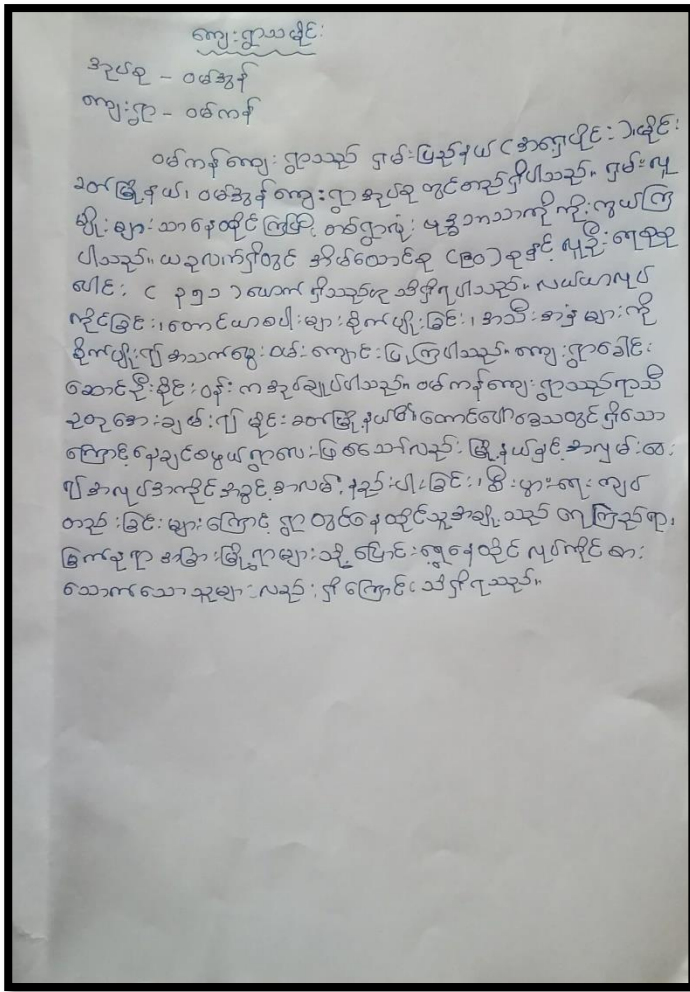 ကျေးရွာသမိုင်း
အုပ်စု - ဝမ်အွန်
ကျေးရွာ - ဝမ်ကန်
ဝမ်ကန်ကျေးရွာသည် ရှမ်းပြည်နယ် (အရှေ့ပိုင်း)၊ မိုင်း
ခတ်မြို့နယ်၊ ဝမ်အွန်ကျေးရွာအုပ်စုတွင်တည်ရှိပါသည်။ ရှမ်းလူ
မျိုးများသာနေထိုင်ကြပြီး တစ်ရွာလုံး ဗုဒ္ဓဘာသာကိုကိုးကွယ်ကြ
ပါသည်။ ယခုလက်ရှိတွင် အိမ်ထောင်စု (၆၀) စုနှင့် လူဦးရေစုစု
ပေါင်း ( ၃၅၁ ) ယောက်ရှိသည်ဟု သိရှိရပါသည်။ လယ်ယာလုပ်
ကိုင်ခြင်း၊ တောင်ယာစပါးများစိုက်ပျိုးခြင်း၊ အသီးအနှံများကို
စိုက်ပျိုး၍ အသက်မွေးဝမ်းကျောင်းပြုကြပါသည်။ ကျေးရွာခေါင်း
ဆောင်ဦးစိုင်းဝန်းကအုပ်ချုပ်ပါသည်။ ဝမ်ကန်ကျေးရွာသည်ရာသီ
ဥတုအေးချမ်း၍ မိုင်းခတ်မြို့နယ်၏တောင်ပေါ်ဒေသတွင်ရှိသော
ကြောင့်နေချင်စဖွယ်ရွာလေးဖြစ်သော်လည်း မြို့နယ်နှင့်အလှမ်းဝေး
၍အလုပ်အကိုင်အခွင့်အလမ်းနည်းပါးခြင်း၊ စီးပွားရေးကျပ်
တည်းခြင်းများကြောင့် ရွာတွင်နေထိုင်သူအချို့သည် တာကြည်ရွာ၊
မြို့ရွာများသို့ ပြောင်းရွှေ့နေထိုင်လုပ်ကိုင်စား
သောက်သောသူများလည်းရှိကြောင်း သိရှိရသည်။